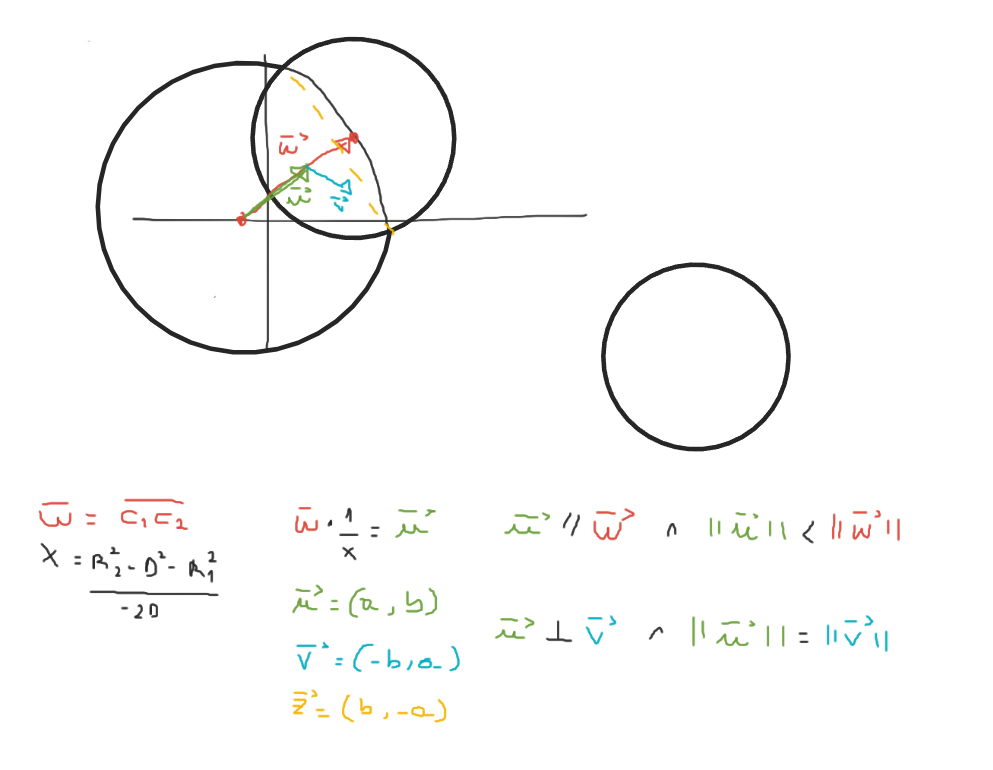 w⃗
u⃗
v⃗
w̅ = C₁C₂
X = R₂² - D² - R₁² / -2D
w̅ · 1/x = u⃗
u⃗ // w⃗ ∧ ||u⃗|| < ||w⃗||
u⃗ = (a, b)
u⃗ ⊥ v⃗ ∧ ||u⃗|| = ||v⃗||
v⃗ = (-b, a)
z⃗ = (b, -a)